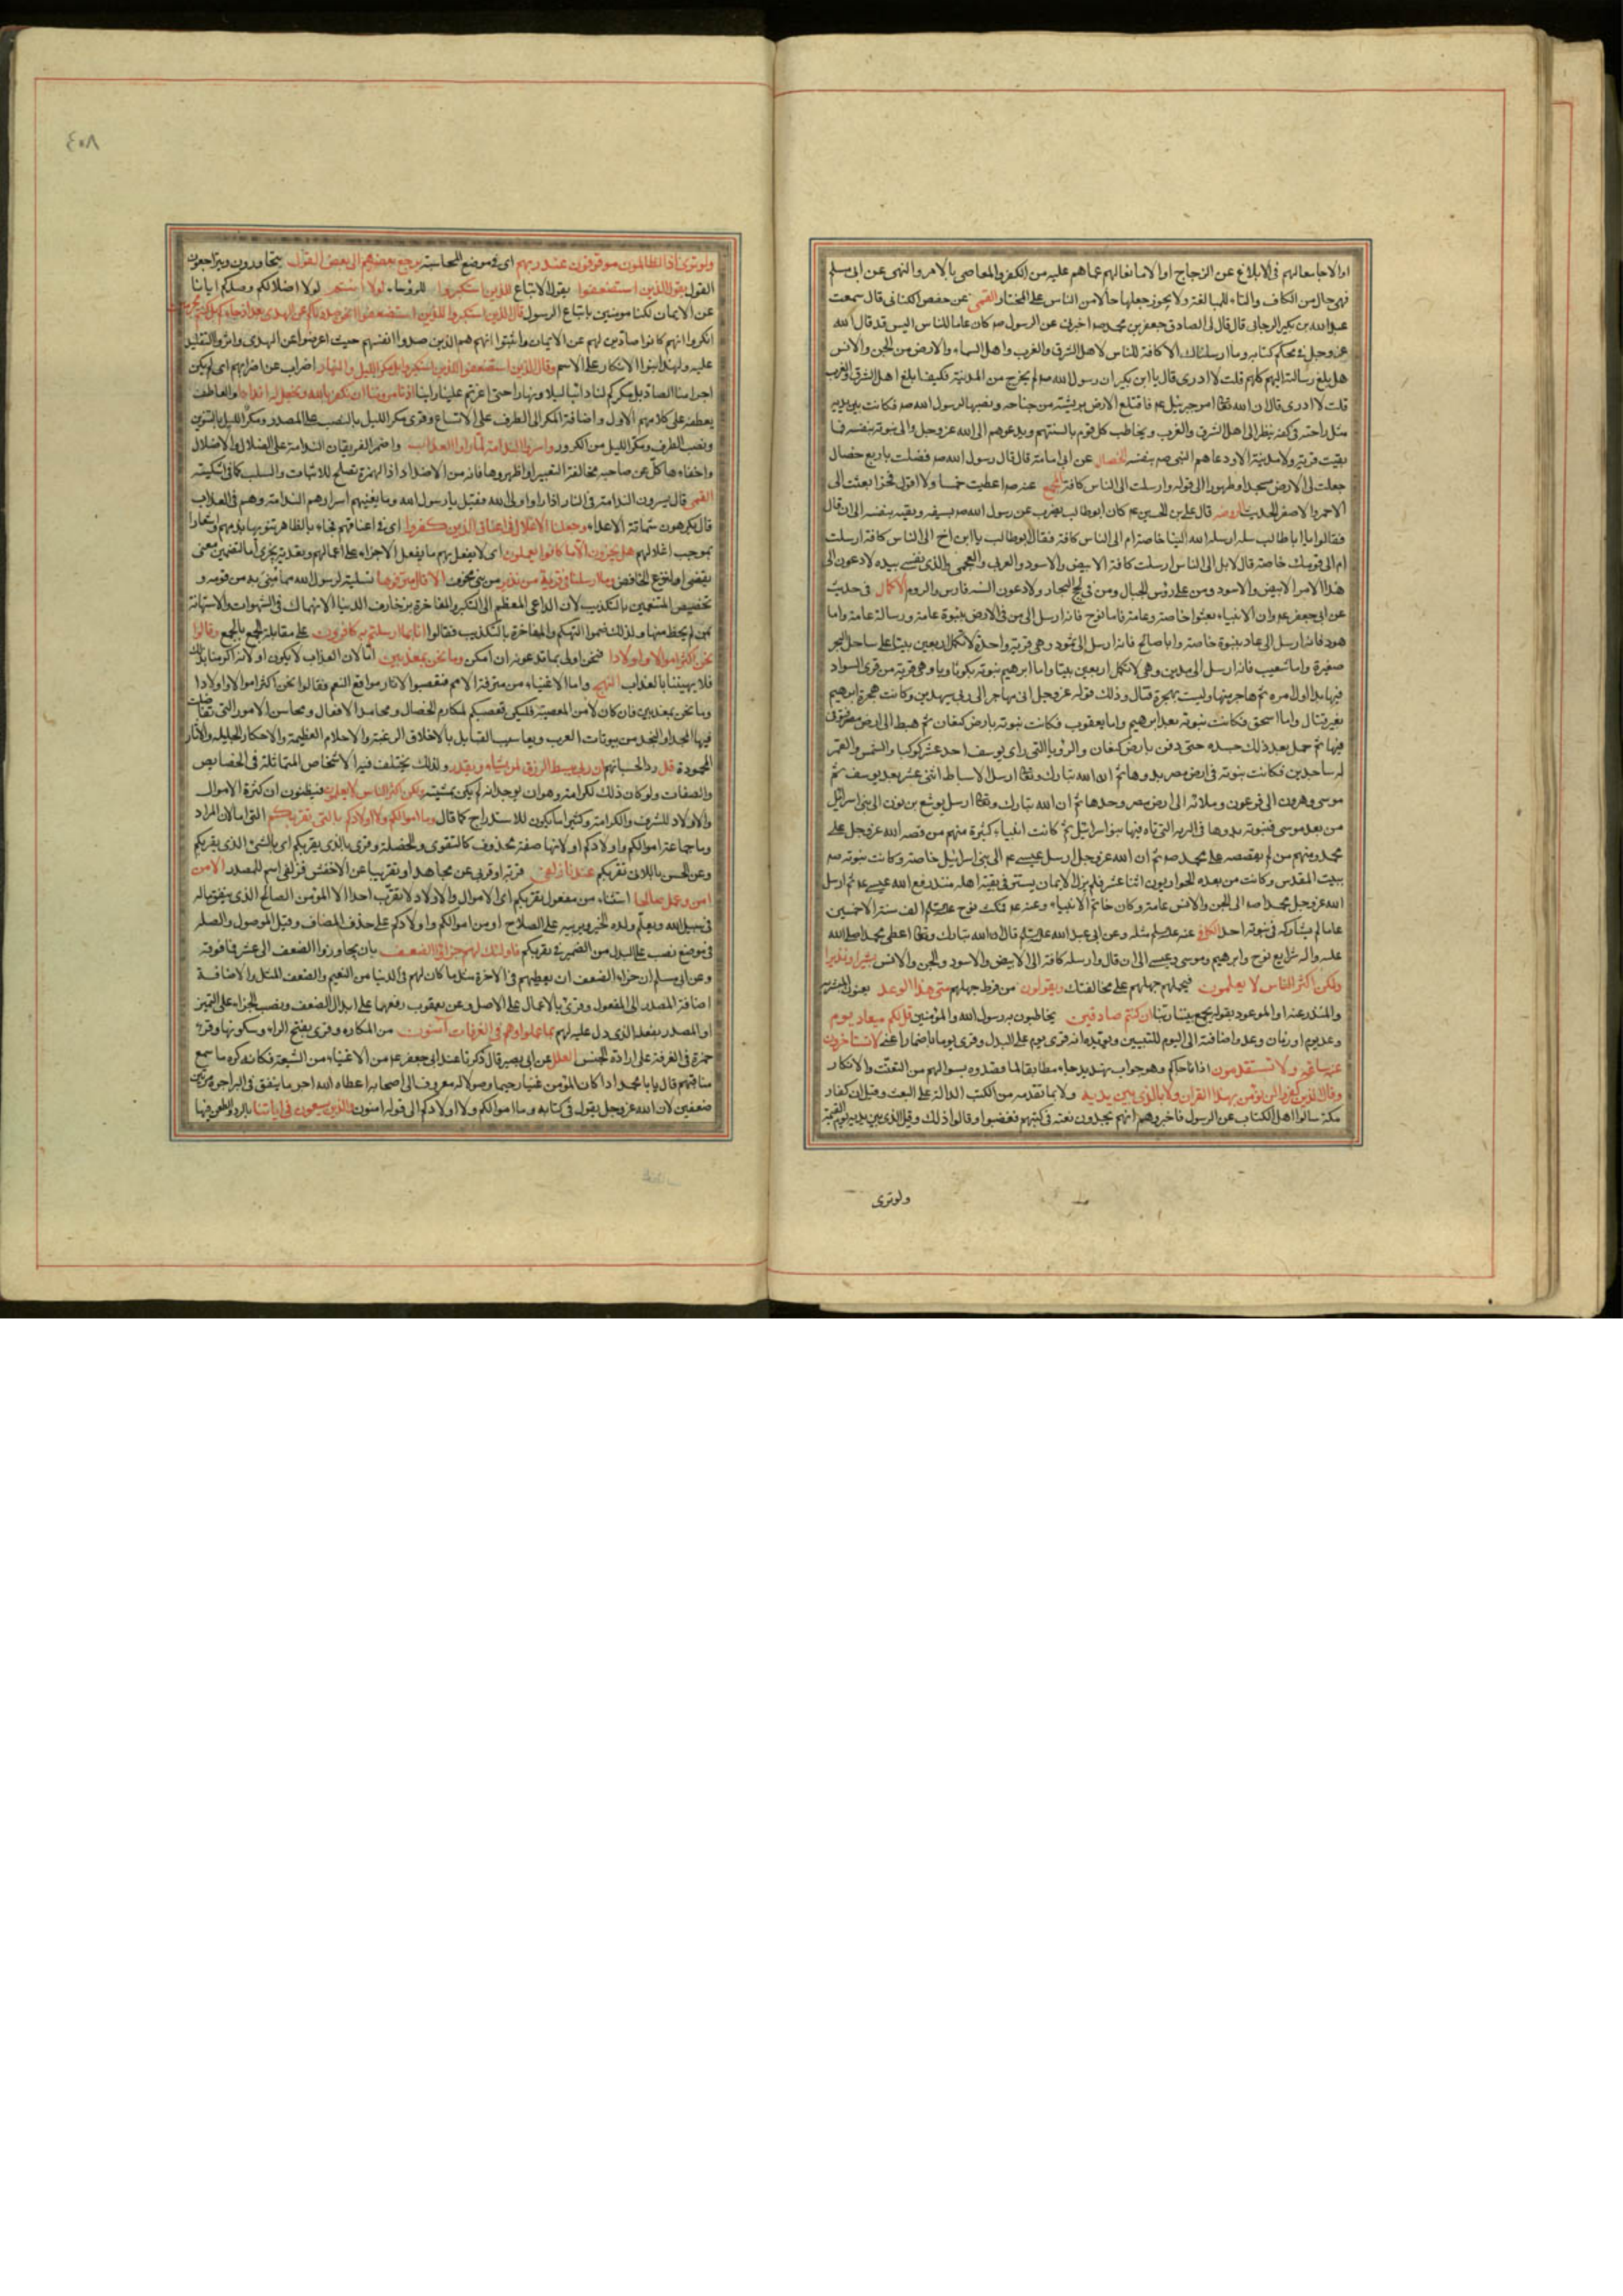 او الا جامعا لهم فى الابلاغ عن الزجاج او الا مانعا لهم عما هم عليه من الكفر والمعاصى بالامر والنهى عن ابى مسلم
فهى حال من الكاف والتاء للمبالغة ولا يجوز جعلها حالا من الناس على المختار القمى عن حفص الكنانى قال سمعت
عبد الله بن بكير الرجانى قال قال لى الصادق جعفر بن محمد صه اخبرنى عن الرسول صه كان عاما للناس اليس قد قال الله
عز وجل فى محكم كتابه وما ارسلناك الا كافة للناس لاهل الشرق والغرب واهل السماء والارض من الجن والانس
هل بلغ رسالته اليهم كلهم قلت لا ادرى قال يا ابن بكير ان رسول الله صه لم يخرج من المدينة فكيف ابلغ اهل الشرق والغرب
قلت لا ادرى قال ان الله تعالى امر جبرئيل عه فاقتلع الارض بريشة من جناحه ونصبها لرسول الله صه فكانت بين يديه
مثل راحته فى كفه ينظر الى اهل الشرق والغرب ويخاطب كل قوم بالسنتهم ويدعوهم الى الله عز وجل والى نبوته بنفسه فما
بقيت قرية ولا مدينة الا ودعاهم النبى صه بنفسه الخصال عن ابى امامة قال قال رسول الله صه فضلت باربع خصال
جعلت لى الارض مسجدا وطهورا الى قوله وارسلت الى الناس كافة المجمع عنه صه اعطيت خمسا ولا اقول فخرا بعثت الى
الاحمر والاصفر الحديث الروضه قال على بن الحسين عه كان ابو طالب يضرب عن رسول الله صه بسيفه ويقيه بنفسه الى ان قال
فقالوا يا ابا طالب سله ارسله الله الينا خاصة ام الى الناس كافة فقال ابو طالب يا ابن اخ الى الناس كافة ارسلت
ام الى قومك خاصة قال لا بل الى الناس ارسلت كافة الابيض والاسود والعربى والعجمى والذى نفسى بيده لادعون الى
هذا الامر الابيض والاسود ومن على رؤس الجبال ومن فى لجج البحار ولادعون السنه فارس والروم الاكمال فى حديث
عن ابى جعفر عه وان الانبياء بعثوا خاصة وعامة فاما نوح فانه ارسل الى من فى الارض بنبوة عامة ورسالة عامة واما
هود فانه ارسل الى عاد بنبوة خاصة واما صالح فانه ارسل الى ثمود وهى قرية واحدة لا تكمل اربعين بيتا على ساحل البحر
صغيرة واما شعيب فانه ارسل الى مدين وهى لا تكمل اربعين بيتا واما ابرهيم نبوته بكوثاربا وهى قرية من قرى السواد
فيها بدا اول امره ثم هاجر منها وليست بهجرة قتال وذلك قوله عز وجل انى مهاجر الى ربى سيهدين وكانت هجرة ابرهيم
بغير قتال واما اسحق فكانت نبوته بعد ابرهيم واما يعقوب فكانت نبوته بارض كنعان ثم هبط الى ارض مصر فتوفى
فيها ثم حمل بعد ذلك جسده حتى دفن بارض كنعان والرؤيا التى راى يوسف احد عشر كوكبا والشمس والقمر
له ساجدين فكانت نبوته فى ارض مصر بدوها ثم ان الله تبارك وتعالى ارسل الاسباط اثنى عشر بعد يوسف ثم
موسى وهرون الى فرعون وملائه الى ارض مصر وحدها ثم ان الله تبارك وتعالى ارسل يوشع بن نون الى بنى اسرائيل
من بعد موسى فنبوته بدوها فى البرية التى تاه فيها بنو اسرائيل ثم كانت انبياء كثيرة منهم من قصه الله عز وجل على
محمد ومنهم من لم يقصصه على محمد صه ثم ان الله عز وجل ارسل عيسى عه الى بنى اسرائيل خاصة وكانت نبوته صه
ببيت المقدس وكانت من بعده الحواريون اثنا عشر فلم يزل الايمان يستتر فى بقية اهله منذ رفع الله عيسى عه ثم ارسل
الله عز وجل محمد اصه الى الجن والانس عامة وكان خاتم الانبياء وعنه عه فمكث نوح عليه السلم الف سنة الا خمسين
عاما لم يشاركه فى نبوته احد الكافى عنه عليه السلم مثله وعن ابى عبد الله عليه السلم قال ان الله تبارك وتعالى اعطى محمدا صلى الله
عليه واله شرايع نوح وابرهيم وموسى وعيسى الى ان قال وارسله كافة الى الابيض والاسود والجن والانس بشيرا ونذيرا
ولكن اكثر الناس لا يعلمون فيحملهم جهلهم على مخالفتك ويقولون من فرط جهلهم متى هذا الوعد يعنون المبشر به
والمنذر عنه او الموعود بقوله يجمع بيننا ربنا ان كنتم صادقين يخاطبون به رسول الله والمؤمنين قل لكم ميعاد يوم
وعد يوم او زمان وعد واضافته الى اليوم للتبيين ويؤيده انه قرى يوم على البدل وقرى يوما باضمار اعنى لا تستاخرون
عنه ساعة ولا تستقدمون اذا فاجاكم وهو جواب تهديد جاء مطابقا لما قصدوه بسوالهم من التعنت والانكار
وقال الذين كفروا لن نؤمن بهذا القران ولا بالذى بين يديه ولا بما تقدمه من الكتب الدالة على البعث وقيل ان كفار
مكة سالوا اهل الكتاب عن الرسول فاخبروهم انهم يجدون نعته فى كتبهم فغضبوا وقالوا ذلك وقيل الذى بين يديه يوم القيمة
ولوترى
٤٠٨
ولو ترى اذ الظالمون موقوفون عند ربهم اى فى موضع المحاسبة يرجع بعضهم الى بعض القول يتحاورون ويتراجعون
القول يقول الذين استضعفوا يقول الاتباع للذين استكبروا للرؤساء لولا انتم لولا اضلالكم وصدكم ايانا
عن الايمان لكنا مومنين باتباع الرسول قال الذين استكبروا للذين استضعفوا انحن صددناكم عن الهدى بعد اذ جاءكم بل كنتم مجرمين
انكروا انهم كانوا صادين لهم عن الايمان واثبتوا انهم هم الذين صدوا انفسهم حيث اعرضوا عن الهدى واثروا التقليد
عليه ولهذا بنوا الانكار على الاسم وقال الذين استضعفوا للذين استكبروا بل مكر الليل والنهار اضراب عن اضرابهم اى لم يكن
اجرامنا الصاد بل مكركم لنا دائبا ليلا ونهارا حتى اعرتم علينا راينا اذ تامروننا ان نكفر بالله ونجعل له اندادا والعاطف
يعطفه على كلامهم الاول واضافة المكر الى الظرف على الاتساع وقرى مكر الليل بالنصب على المصدر ومكر الليل بالتنوين
ونصب الظرف ومكر الليل من الكرور واسروا الندامة لما راوا العذاب واضمر الفريقان الندامة على الضلال والاضلال
واخفاءها كل عن صاحبه مخافة التعيير او اظهروها فانه من الاضداد اذ الهمزة تصلح للاثبات والسلب كما فى اشكيته
القمى قال يسرون الندامة فى النار اذا راوا ولى الله فقيل يا رسول الله وما يغنيهم اسرارهم الندامة وهم فى العذاب
قال يكرهون شماتة الاعداء وجعلنا الاغلال فى اعناق الذين كفروا اى فى اعناقهم فجاء بالظاهر تنويها بذمهم واشعارا
بموجب اغلالهم هل يجزون الا ما كانوا يعملون اى لا يفعل بهم ما يفعل الا جزاء على اعمالهم وتعدية يجزى اما لتضمين معنى
يقضى او لنزع الخافض وما ارسلنا فى قرية من نذير من نبى مخوف الا قال مترفوها تسلية لرسول الله مما منى به من قومه و
تخصيص المتنعمين بالتكذيب لان الداعى المعظم الى التكبر والمفاخرة بزخارف الدنيا الانهماك فى الشهوات والاستهانة
بمن لم يحظ منها ولذلك ضموا التهكم والمفاخرة بالتكذيب فقالوا انا بما ارسلتم به كافرون على مقابلة الجمع بالجمع وقالوا
نحن اكثر اموالا واولادا فنحن اولى بما تدعونه ان امكن وما نحن بمعذبين اما لان العذاب لا يكون او لانه اكرمنا بذلك
فلا يهيننا بالعذاب النهج واما الاغنياء من مترفة الامم فتعصبوا لاثار مواقع النعم فقالوا نحن اكثر اموالا واولادا
وما نحن بمعذبين فان كان لا بد من العصبية فليكن تعصبكم لمكارم الخصال ومحامد الافعال ومحاسن الامور التى تفاضلت
فيها المجداء والنجداء من بيوتات العرب ويعاسيب القبايل بالاخلاق الرغيبة والاحلام العظيمة والاخطار الجليلة والاثار
المحمودة قل رد الحسبانهم ان ربى يبسط الرزق لمن يشاء ويقدر ولذلك يختلف فيه الاشخاص المتماثلة فى الخصايص
والصفات ولو كان ذلك لكرامة وهوان يوجبانه لم يكن بمشيته ولكن اكثر الناس لا يعلمون فيظنون ان كثرة الاموال
والاولاد للشرف والكرامة وكثيرا ما يكون للاستدراج كما قال وما اموالكم ولا اولادكم بالتى تقربكم التى اما لان المراد
وما جماعة اموالكم واولادكم او لانها صفة محذوف كالتقوى والخصلة وقرى بالذى يقربكم اى بالشئ الذى يقربكم
وعن الحسن باللاتى تقربكم عندنا زلفى قربة او قربى عن مجاهد او تقريبا عن الاخفش فزلفى اسم المصدر الا من
امن وعمل صالحا استثناء من مفعول تقربكم اى الاموال والاولاد لا تقرب احدا الا المؤمن الصالح الذى ينفق ماله
فى سبيل الله ويعلم ولده الخير ويربيه على الصلاح او من اموالكم واولادكم على حذف المضاف وقيل الموصول والصلة
فى موضع نصب على البدل من الضمير فى تقربكم فاولئك لهم جزاء الضعف بان يجاوزوا الضعف الى عشر فما فوقه
وعن ابى مسلم ان جزاء الضعف ان يعطيهم فى الاخرة مثل ما كان لهم فى الدنيا من النعيم والضعف المثل والاضافة
اضافة المصدر الى المفعول وقرئ بالاعمال على الاصل وعن يعقوب رفعهما على ابدال الضعف ونصب الجزاء على التميز
او المصدر بفعله الذى دل عليه لهم بما عملوا وهم فى الغرفات آمنون من المكاره وقرى بفتح الراء وسكونها وقرا
حمزة فى الغرفة على ارادة الجنس العلل عن ابى بصير قال ذكرنا عند ابى جعفر عه من الاغنياء من الشيعة فكانه كره ما سمع
منا فيهم قال يا با محمد اذا كان المؤمن غنيا رحيما وصولا له معروف الى اصحابه اعطاه الله اجر ما ينفق فى البر اجره مرتين
ضعفين لان الله عز وجل يقول فى كتابه وما اموالكم ولا اولادكم الى قوله امنون والذين يسعون فى اياتنا بالرد والطعن فيها